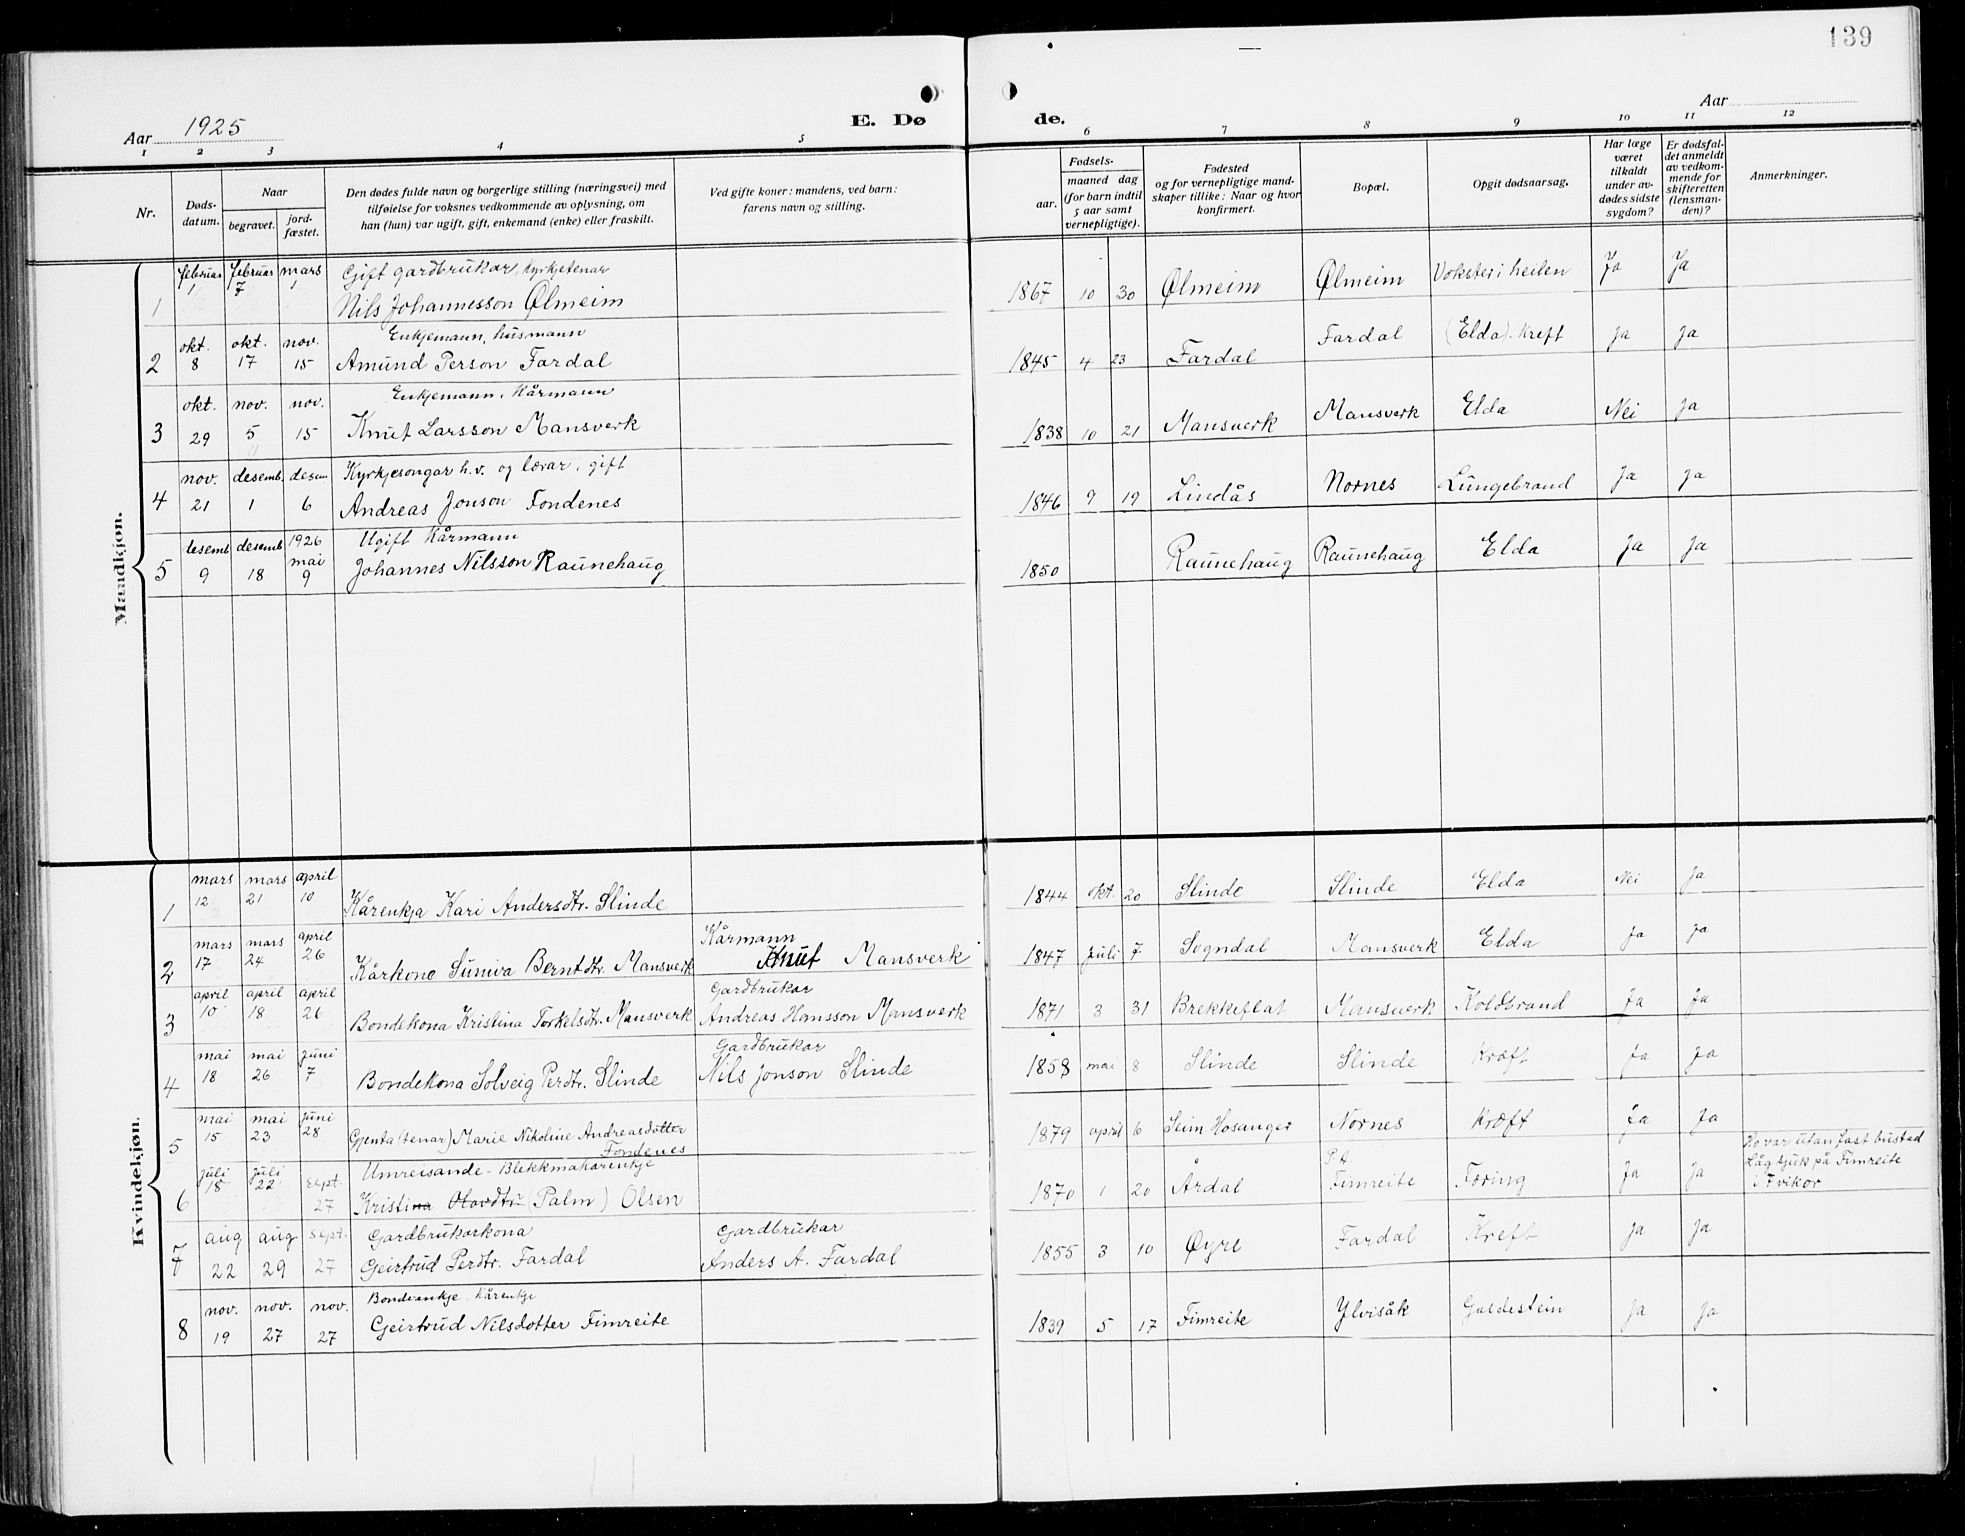 139
Aar 1925
E. Døde.
Aar
1 2 3 4 5 6 7 8 9 10 11 12
Nr.
Døds-datum.
Naar
begravet.
jord-fæstet.
Den dødes fulde navn og borgerlige stilling (næringsvei) med
tilføielse for voksnes vedkommende av oplysning, om
han (hun) var ugift, gift, enkemand (enke) eller fraskilt.
Ved gifte koner: mandens, ved barn:
farens navn og stilling.
Fødsels-
aar.
maaned dag
(for barn indtil
5 aar samt
vernepligtige).
Fødested
og for vernepligtige mand-
skaper tillike: Naar og hvor
konfirmert.
Bopæl.
Opgit dødsaarsag.
Har læge
været
tilkaldt
under av-
dødes sidste
sygdom?
Er dødsfal-
det anmeldt
av vedkom-
mende for
skifteretten
(lensman-
den)?
Anmerkninger.
Mandkjøn.
februar februar mars Gift gardbrukar, Kyrkjetenar
1 1 7 1 Nils Johannesson Ølmeim 1867 10 30 Ølmeim Ølmeim Vokster i heilen Ja Ja
okt. okt. nov. Enkjemann, husmann
2 8 17 15 Amund Person Fardal 1845 4 23 Fardal Fardal (Elda). Kreft Ja Ja
okt. nov. nov. Enkjemann, Kårmann
3 29 5 15 Knut Larsson Mansverk 1838 10 21 Mansverk Mansverk Elda Nei Ja
nov. desemb. desem Kyrkjesongar h.v. og lærar, gift
4 21 1 6 Andreas Jonson Fondenes 1846 9 19 Lindås Nornes Lungebrand Ja Ja
desemb desemb 1926 mai Ugift Kårmann
5 9 18 9 Johannes Nilsson Raunehaug 1850 Raunehaug Raunehaug Elda Ja Ja
Kvindekjøn.
mars mars april
1 12 21 10 Kårenkja Kari Andersdtr. Slinde 1844 okt. 20 Slinde Slinde Elda Nei Ja
mars mars april Kårmann
2 17 24 26 Kårkona Suniva Berntdtr. Mansverk Knut Mansverk 1847 juli 7 Sogndal Mansverk Elda Ja Ja
april april april Gardbrukar
3 10 18 26 Bondekona Kristina Torkelsdtr. Mansverk Andreas Hansson Mansverk 1871 3 31 Brekkeflat Mansverk Koldbrand Ja Ja
mai mai juni Gardbrukar
4 18 26 7 Bondekona Solveig Perdtr. Slinde Nils Jonson Slinde 1858 mai 8 Slinde Slinde Kræft Ja Ja
mai mai juni
5 15 23 28 Gjenta (tenar) Marie Nikoline Andreasdotter Fondenes 1879 april 6 Seim Hosanger Nornes Kræft Ja Ja
juli juli sept. Umreisande - Blekkmakarenkje
6 18 22 27 Kristina Olavdtr (Palm) Olsen 1870 1 20 Årdal P.t. Fimreite Tæring Ja Ja Ho var utan fast bustad
Låg sjuk på Fimreite
i 7 vikor
aug aug sept. Gardbrukarkona Gardbrukar
7 22 29 27 Geirtrud Perdtr. Fardal Anders A. Fardal 1855 3 10 Øyre Fardal Kreft Ja Ja
nov. nov. nov. Bondeenkje. Kårenkje
8 19 27 27 Geirtrud Nilsdotter Fimreite 1839 5 17 Fimreite Ylvisåk Galdestein Ja Ja